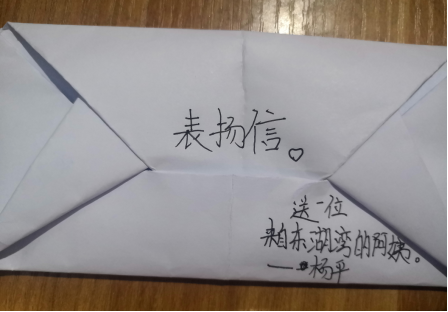 表扬信。
送一位
来自东湖湾的阿姨。
——杨平